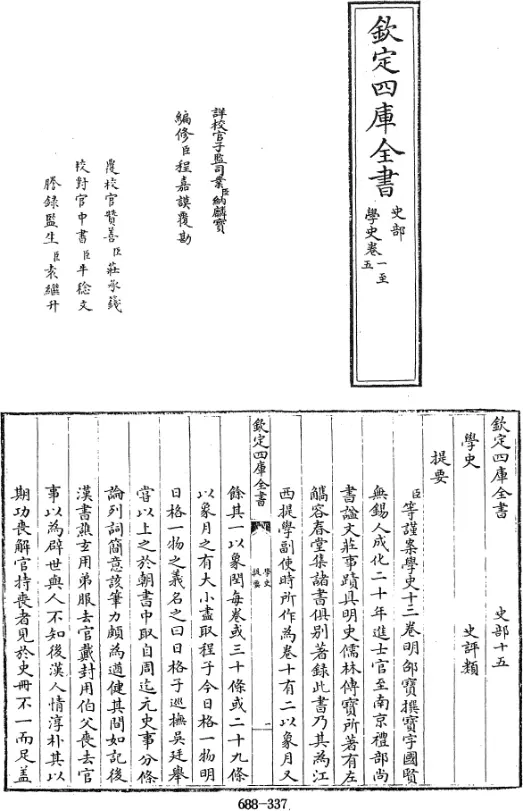 欽定四庫全書
史部
學史卷一至五
詳校官子監司業臣納麟寶
編修臣程嘉謨覆勘
覆校官贊善臣莊承籛
校對官中書臣牛稔文
謄錄監生臣袁繼升
欽定四庫全書 史部十五
學史 史評類
提要
臣等謹案學史十二卷明邵寶撰寶字國賢
無錫人成化二十年進士官至南京禮部尚
書諡文莊事蹟具明史儒林傳寶所著有左
觿容春堂集諸書俱别著錄此書乃其為江
西提學副使時所作為卷十有二以象月又
欽定四庫全書 學史 提要 一
餘其一以象閏每卷或三十條或二十九條
以象月之有大小盡取程子今日格一物明
日格一物之義名之曰日格子巡撫吳廷舉
嘗以上之於朝書中取自周迄元史事分條
論列詞簡意該筆力頗為遒健其間如記後
漢書譙玄用弟服去官戴封用伯父喪去官
事以為辟世與人不知後漢人情淳朴其以
期功喪解官持喪者見於史冊不一而足蓋
688-337